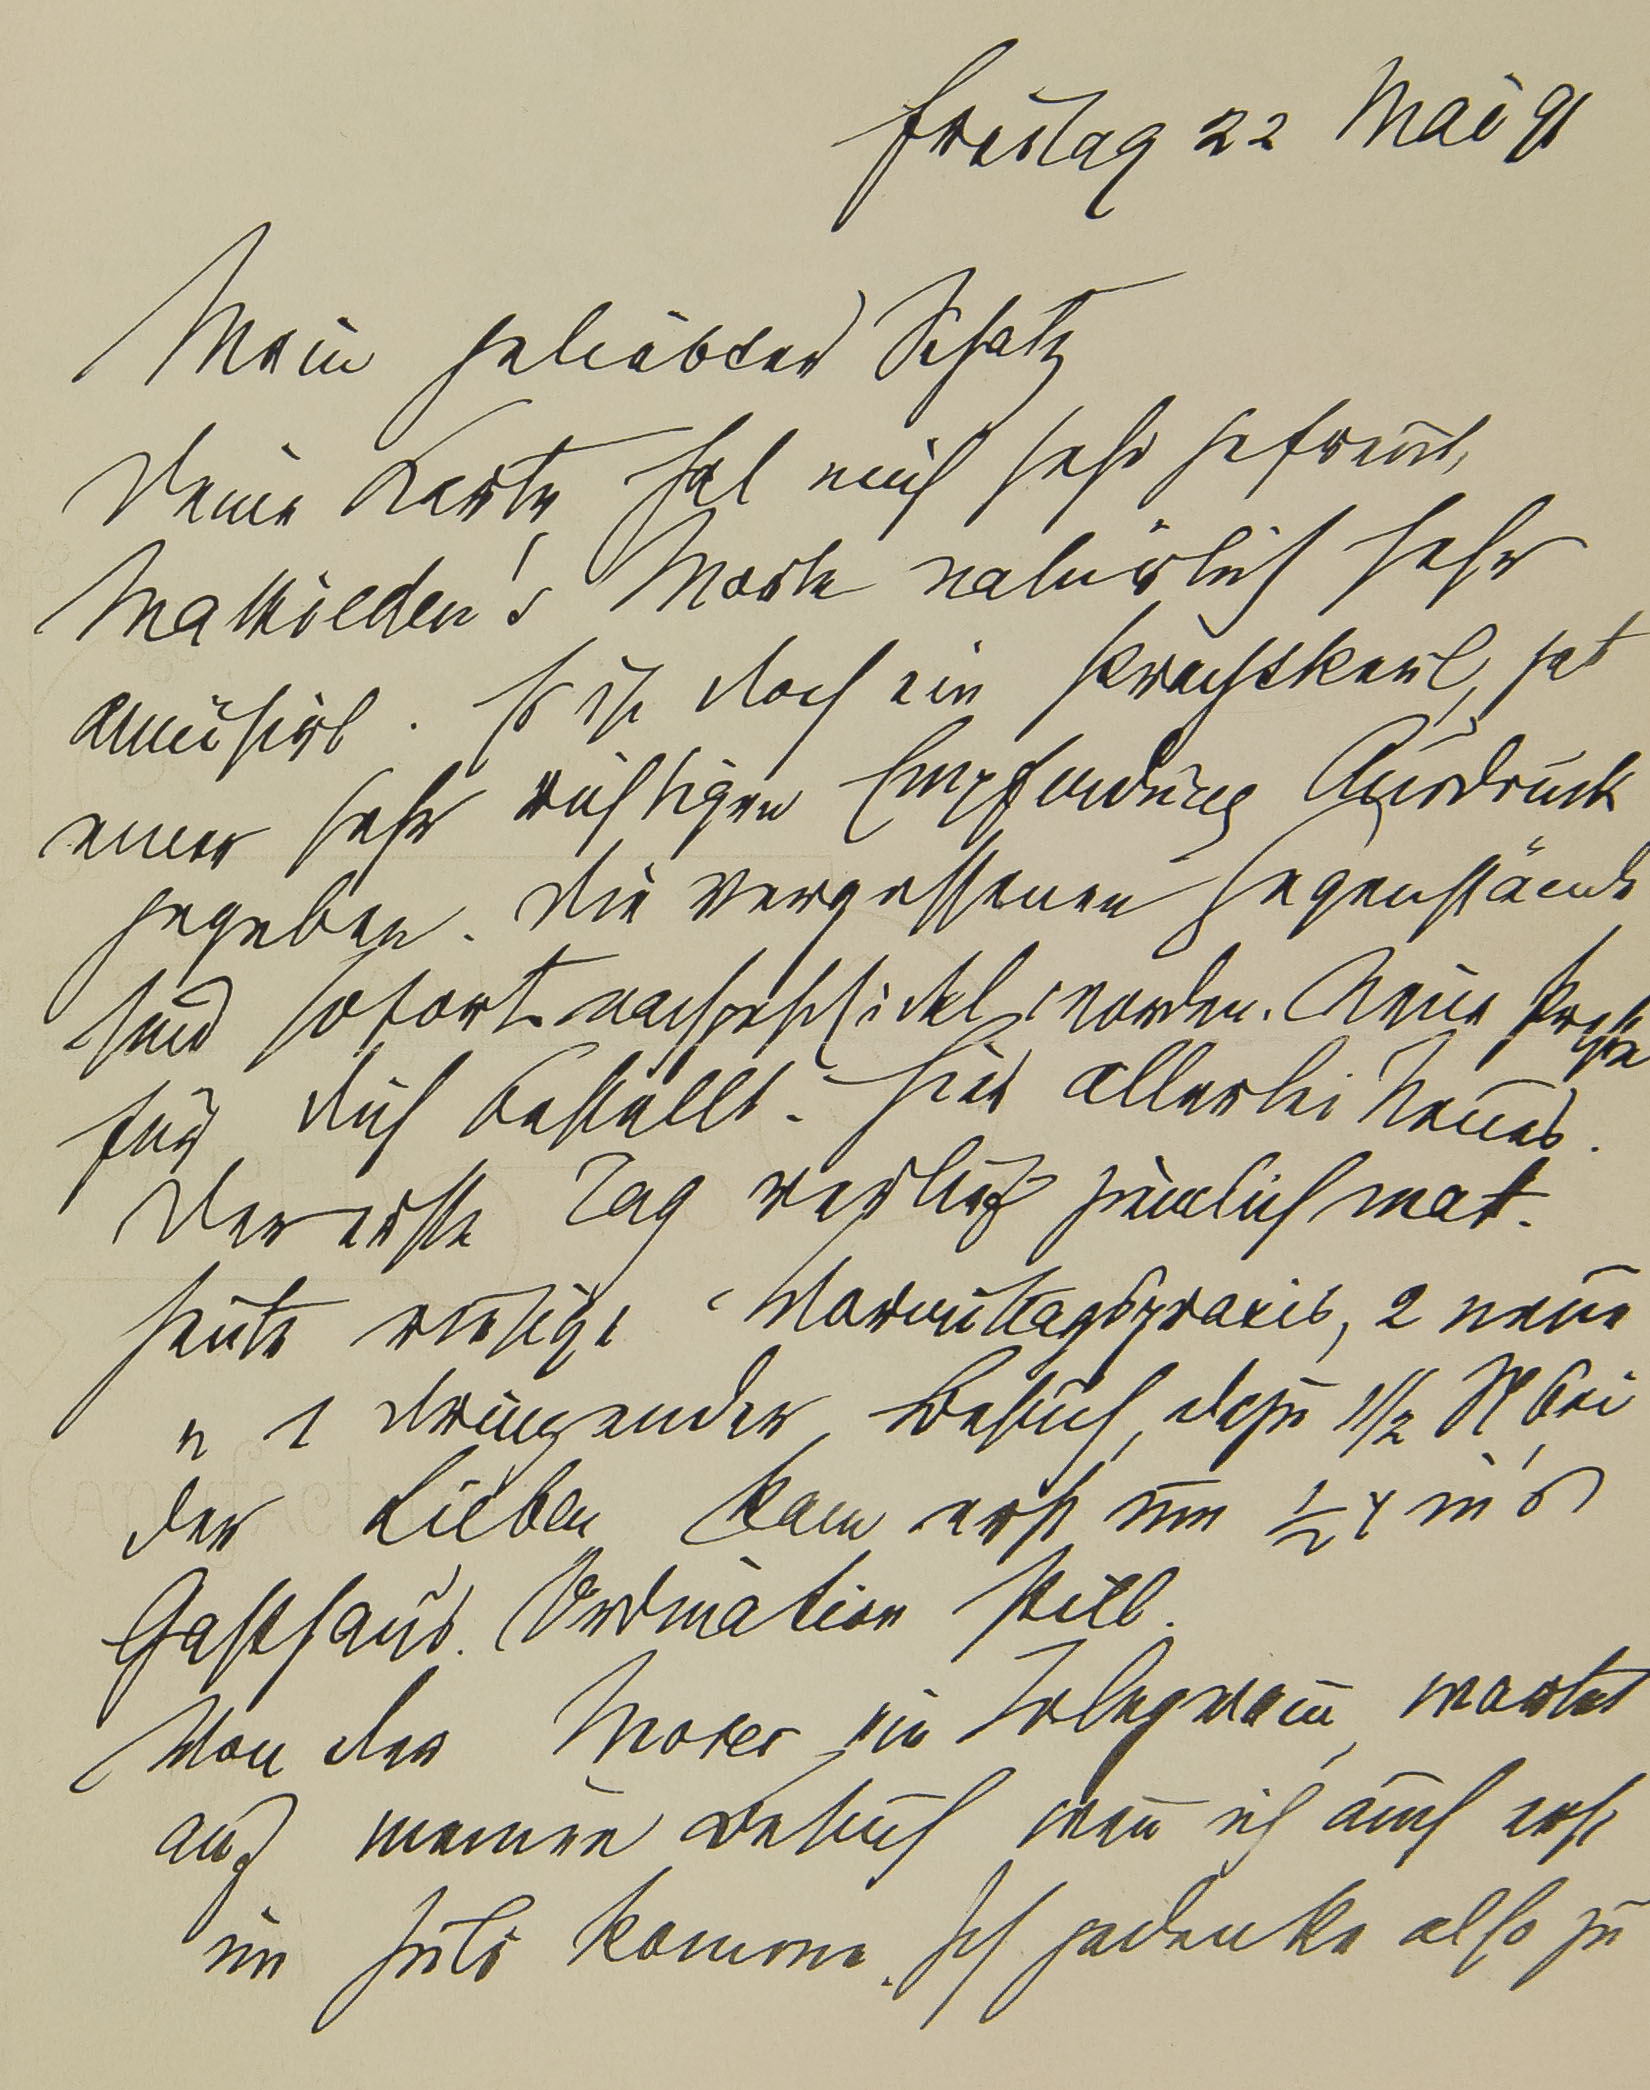 Freitag 22 Mai 91
Mein geliebter Schatz
Deine Karte hat mich sehr gefreut,
Mathilden's Worte natürlich sehr
amüsirt. Es ist doch ein Prachtkerl, hat
einer sehr richtigen Empfindung Ausdruck
gegeben. Die vergessenen Gegenstände
sind sofort nachgeschickt worden. Neue
für Dich bestellt. Hier allerlei Neues.
Der erste Tag verlief ziemlich matt.
Heute riesige Vormittagspraxis, 2 neue
u 1 dringender Besuch, dazu 1 1/2 St bei
der Lieben kam erst um 1/2 in's
Gasthaus. Ordination still.
Von der Moser ein Telegram̅, wartet
auf meinen Besuch wen̅ ich auch erst
im Juli komme. Ich gedenke also zu